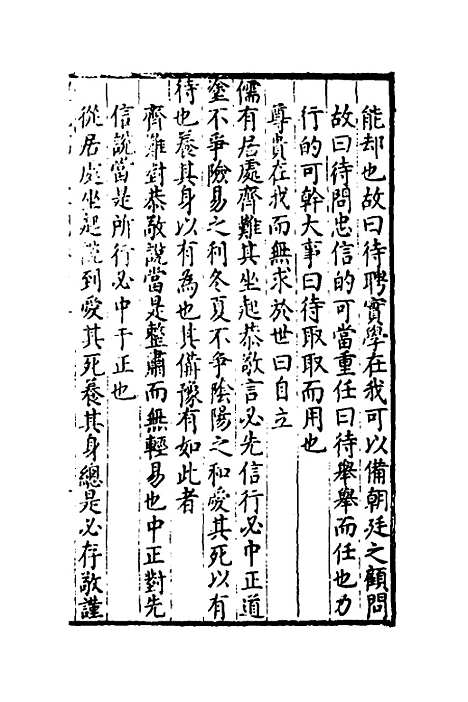 能却也故曰待聘實學在我可以備朝廷之顧問
故曰待問忠信的可當重任曰待舉舉而任也力
行的可幹大事曰待取取而用也
尊貴在我而無求於世曰自立
儒有居處齊難其坐起恭敬言必先信行必中正道
塗不爭險易之利冬夏不爭陰陽之和愛其死以有
待也養其身以有為也其備豫有如此者
齊難對恭敬說當是整肅而無輕易也中正對先
信說當是所行必中于正也
從居處坐起說到愛其死養其身總是必存敬謹